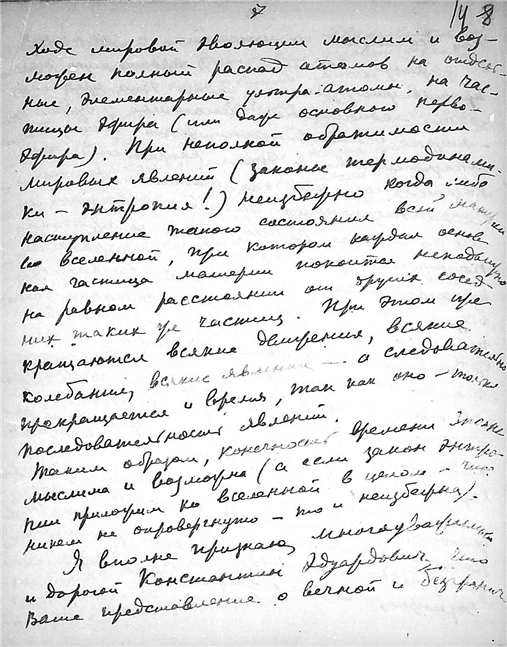 7 14 8
ходе мировой эволюции мыслим и воз-
можен полный распад атомов на отдель-
ные, элементарные ультра-атомы, на час-
тицы эфира (или даже основного перво-
эфира). При неполной обратимости
мировых явлений (законы термодинами-
ки — энтропия!) неизбежно когда либо
наступление такого состояния всей
вселенной, при котором каждая основ-
ная частица материи покоится неподвижно
на равном расстоянии от других сосед-
них таких же частиц. При этом пре-
кращаются всякие движения, всякие
колебания, всякие явления — а следовательно
прекращается и время, так как оно — только
последовательность явлений.
Таким образом, конечность времени
мыслима и возможна (а если закон энтро-
пии приложим ко вселенной в целом — что
никем не опровергнуто — то и неизбежна).
Я вполне признаю, многоуважаемый
и дорогой Константин Эдуардович, что
Ваше представление о вечной и безгранич